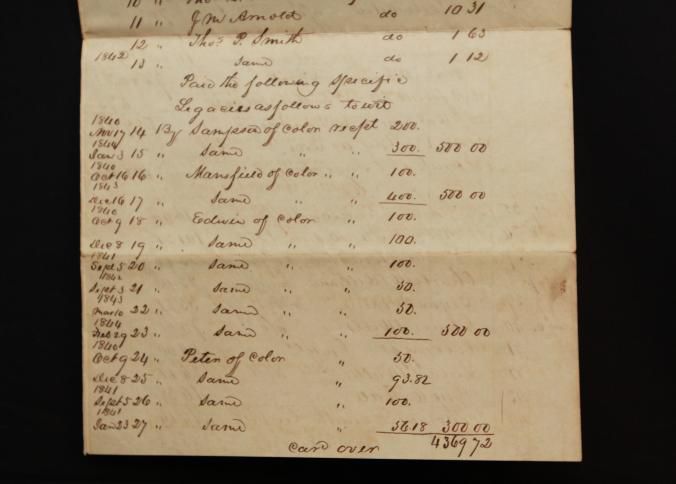 10 " Tho
11 " J M Arnold do 10 31
12 " Thos P. Smith do 1 63
1842
13 " same do 1 12
Paid the following Specific
Legacies as follows to wit
1840
Nov 17 14 By Sampson of color recpt 200.
1841
Jan 3 15 " same " " 300. 500 00
1840
Oct 16 16 " Mansfield of color " " 100.
1843
Dec 16 17 " same " " 400. 500 00
1840
Oct 9 18 " Edwin of color " 100.
Dec 8 19 " same " " 100.
1841
Sept 5 20 " same " " 100.
1842
Sept 3 21 " same " " 50.
1843
Mar 10 22 " same " " 50.
1844
Feb 29 23 " same " " 100. 500 00
1840
Oct 9 24 " Peter of color " 50.
Dec 8 25 " same " 93.82
1841
Sept 5 26 " same " 100.
1841
Jan 23 27 " same " 56.18 300 00
Card over 4369 72